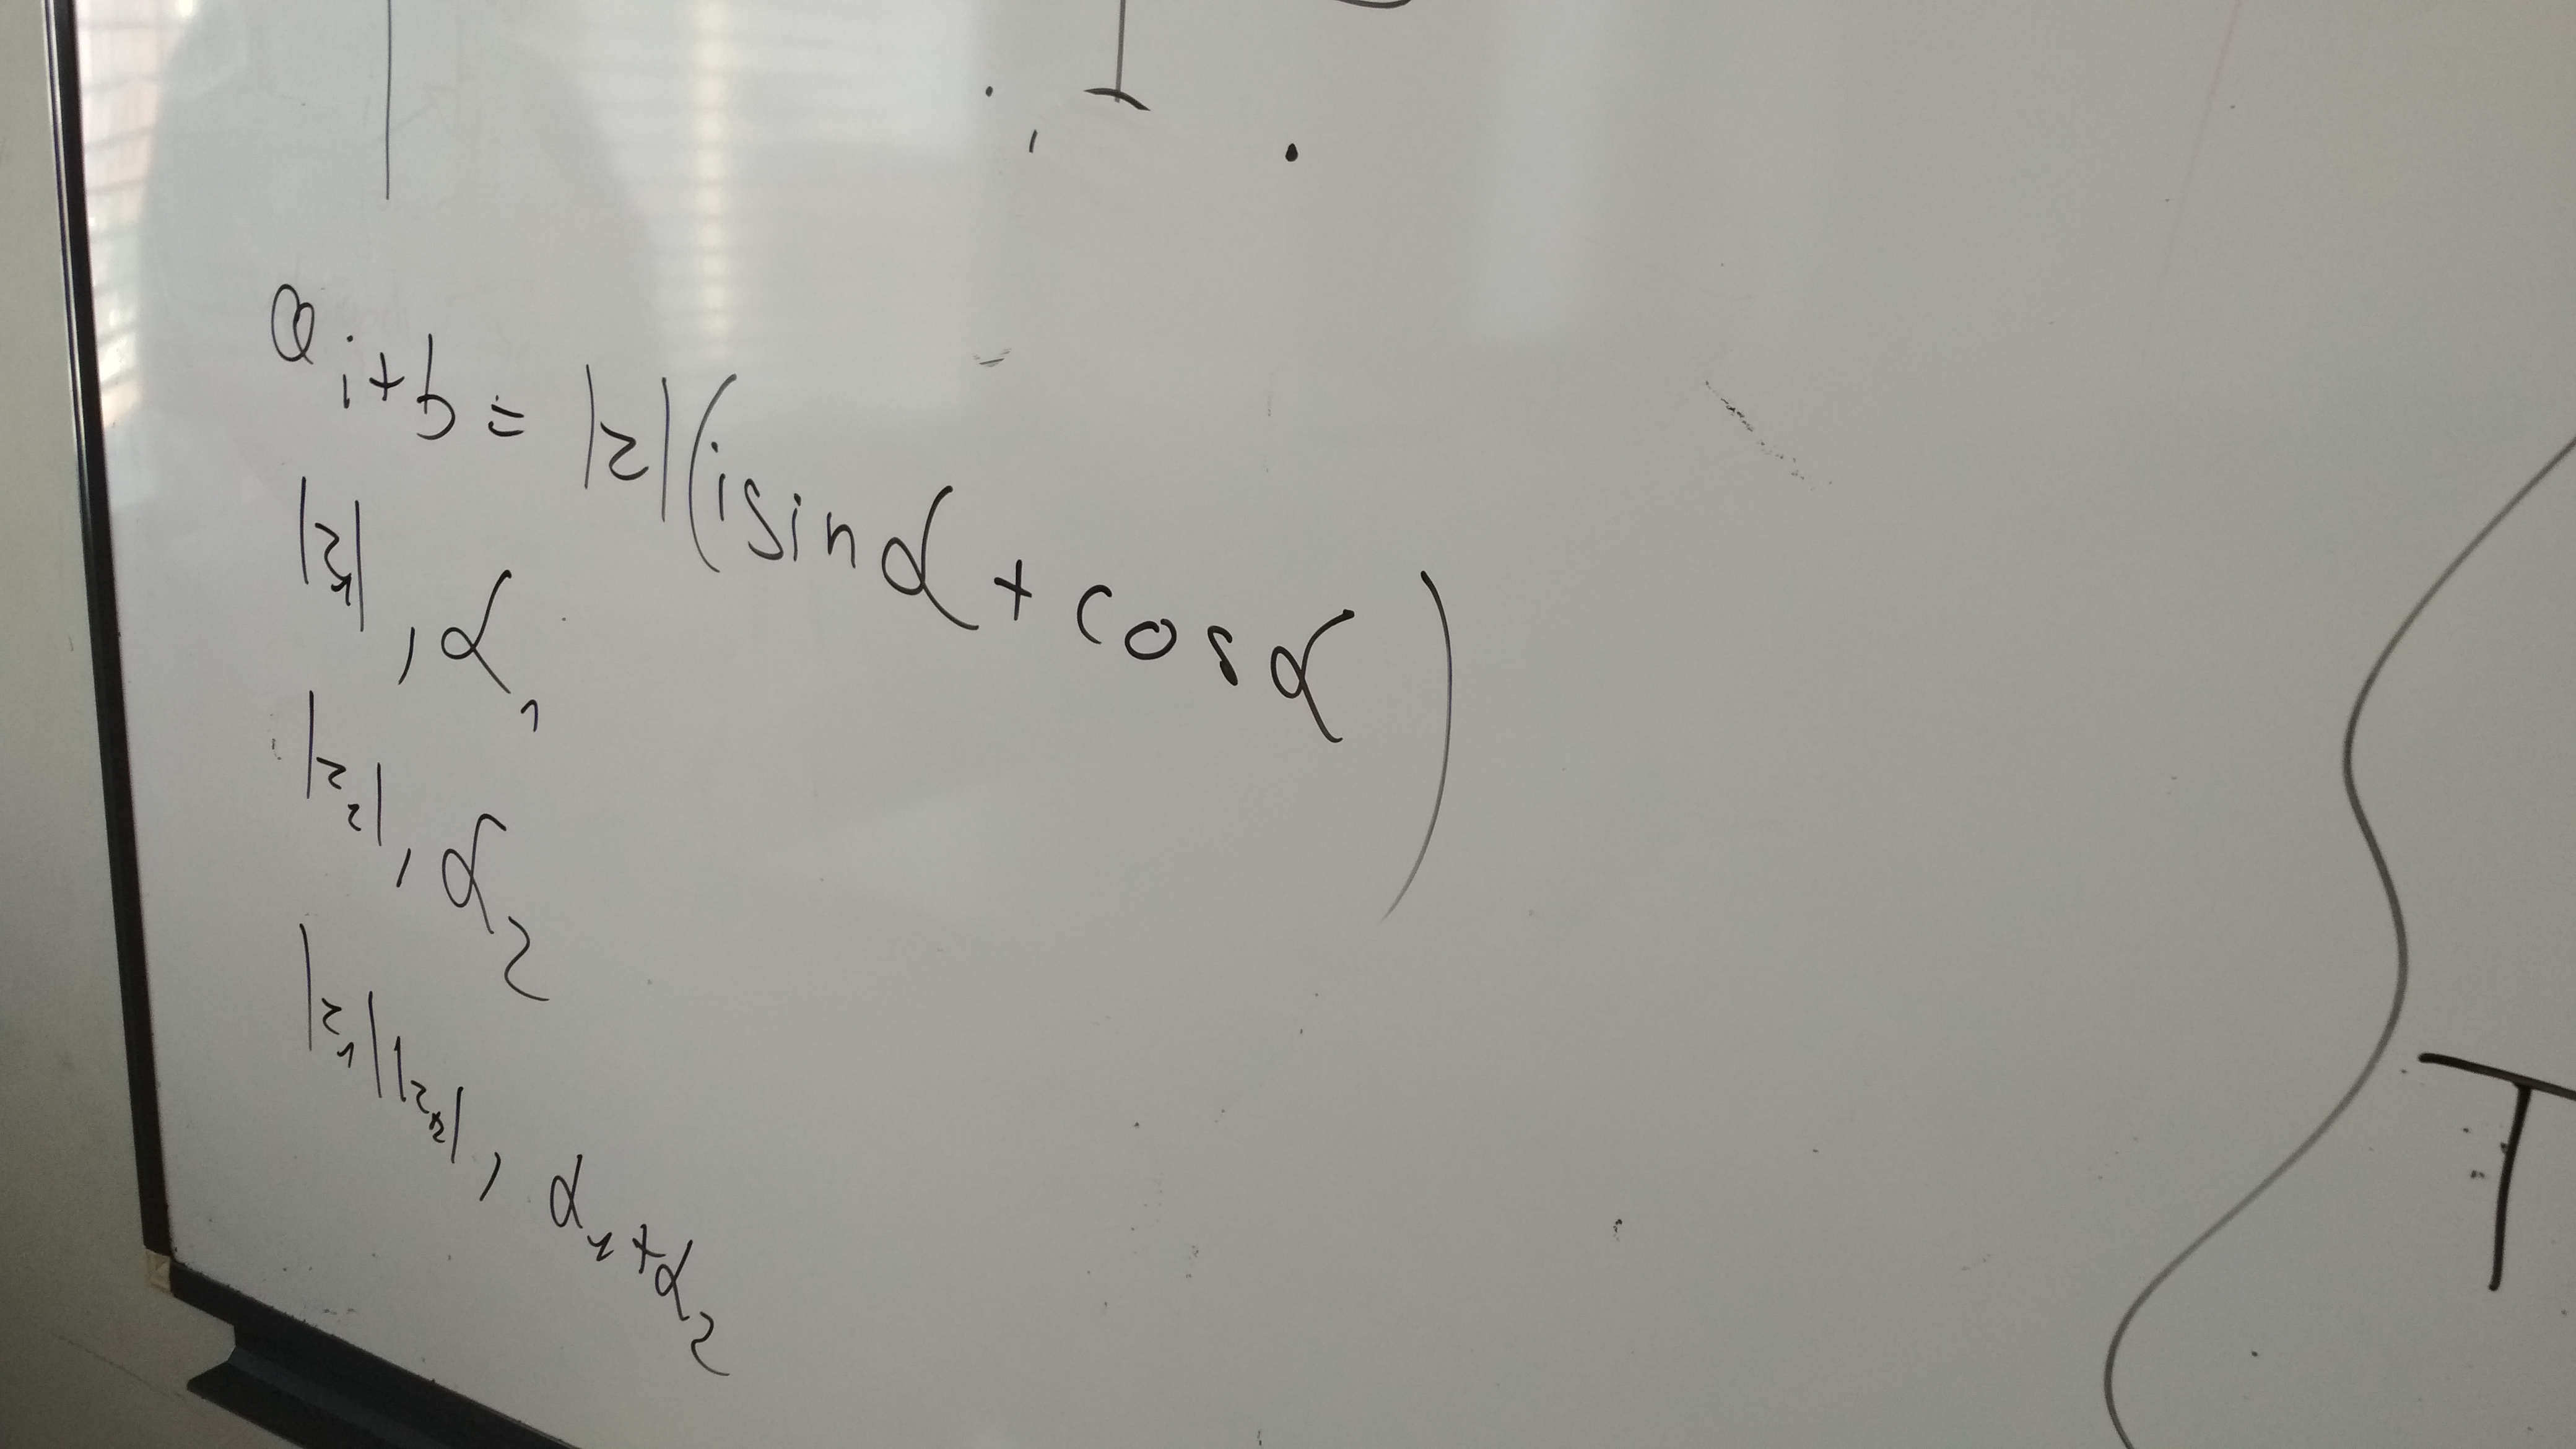 ai+b = |z|(isinα + cosα)
|z₁|, α₁
|z₂|, α₂
|z₁||z₂|, α₁+α₂
T